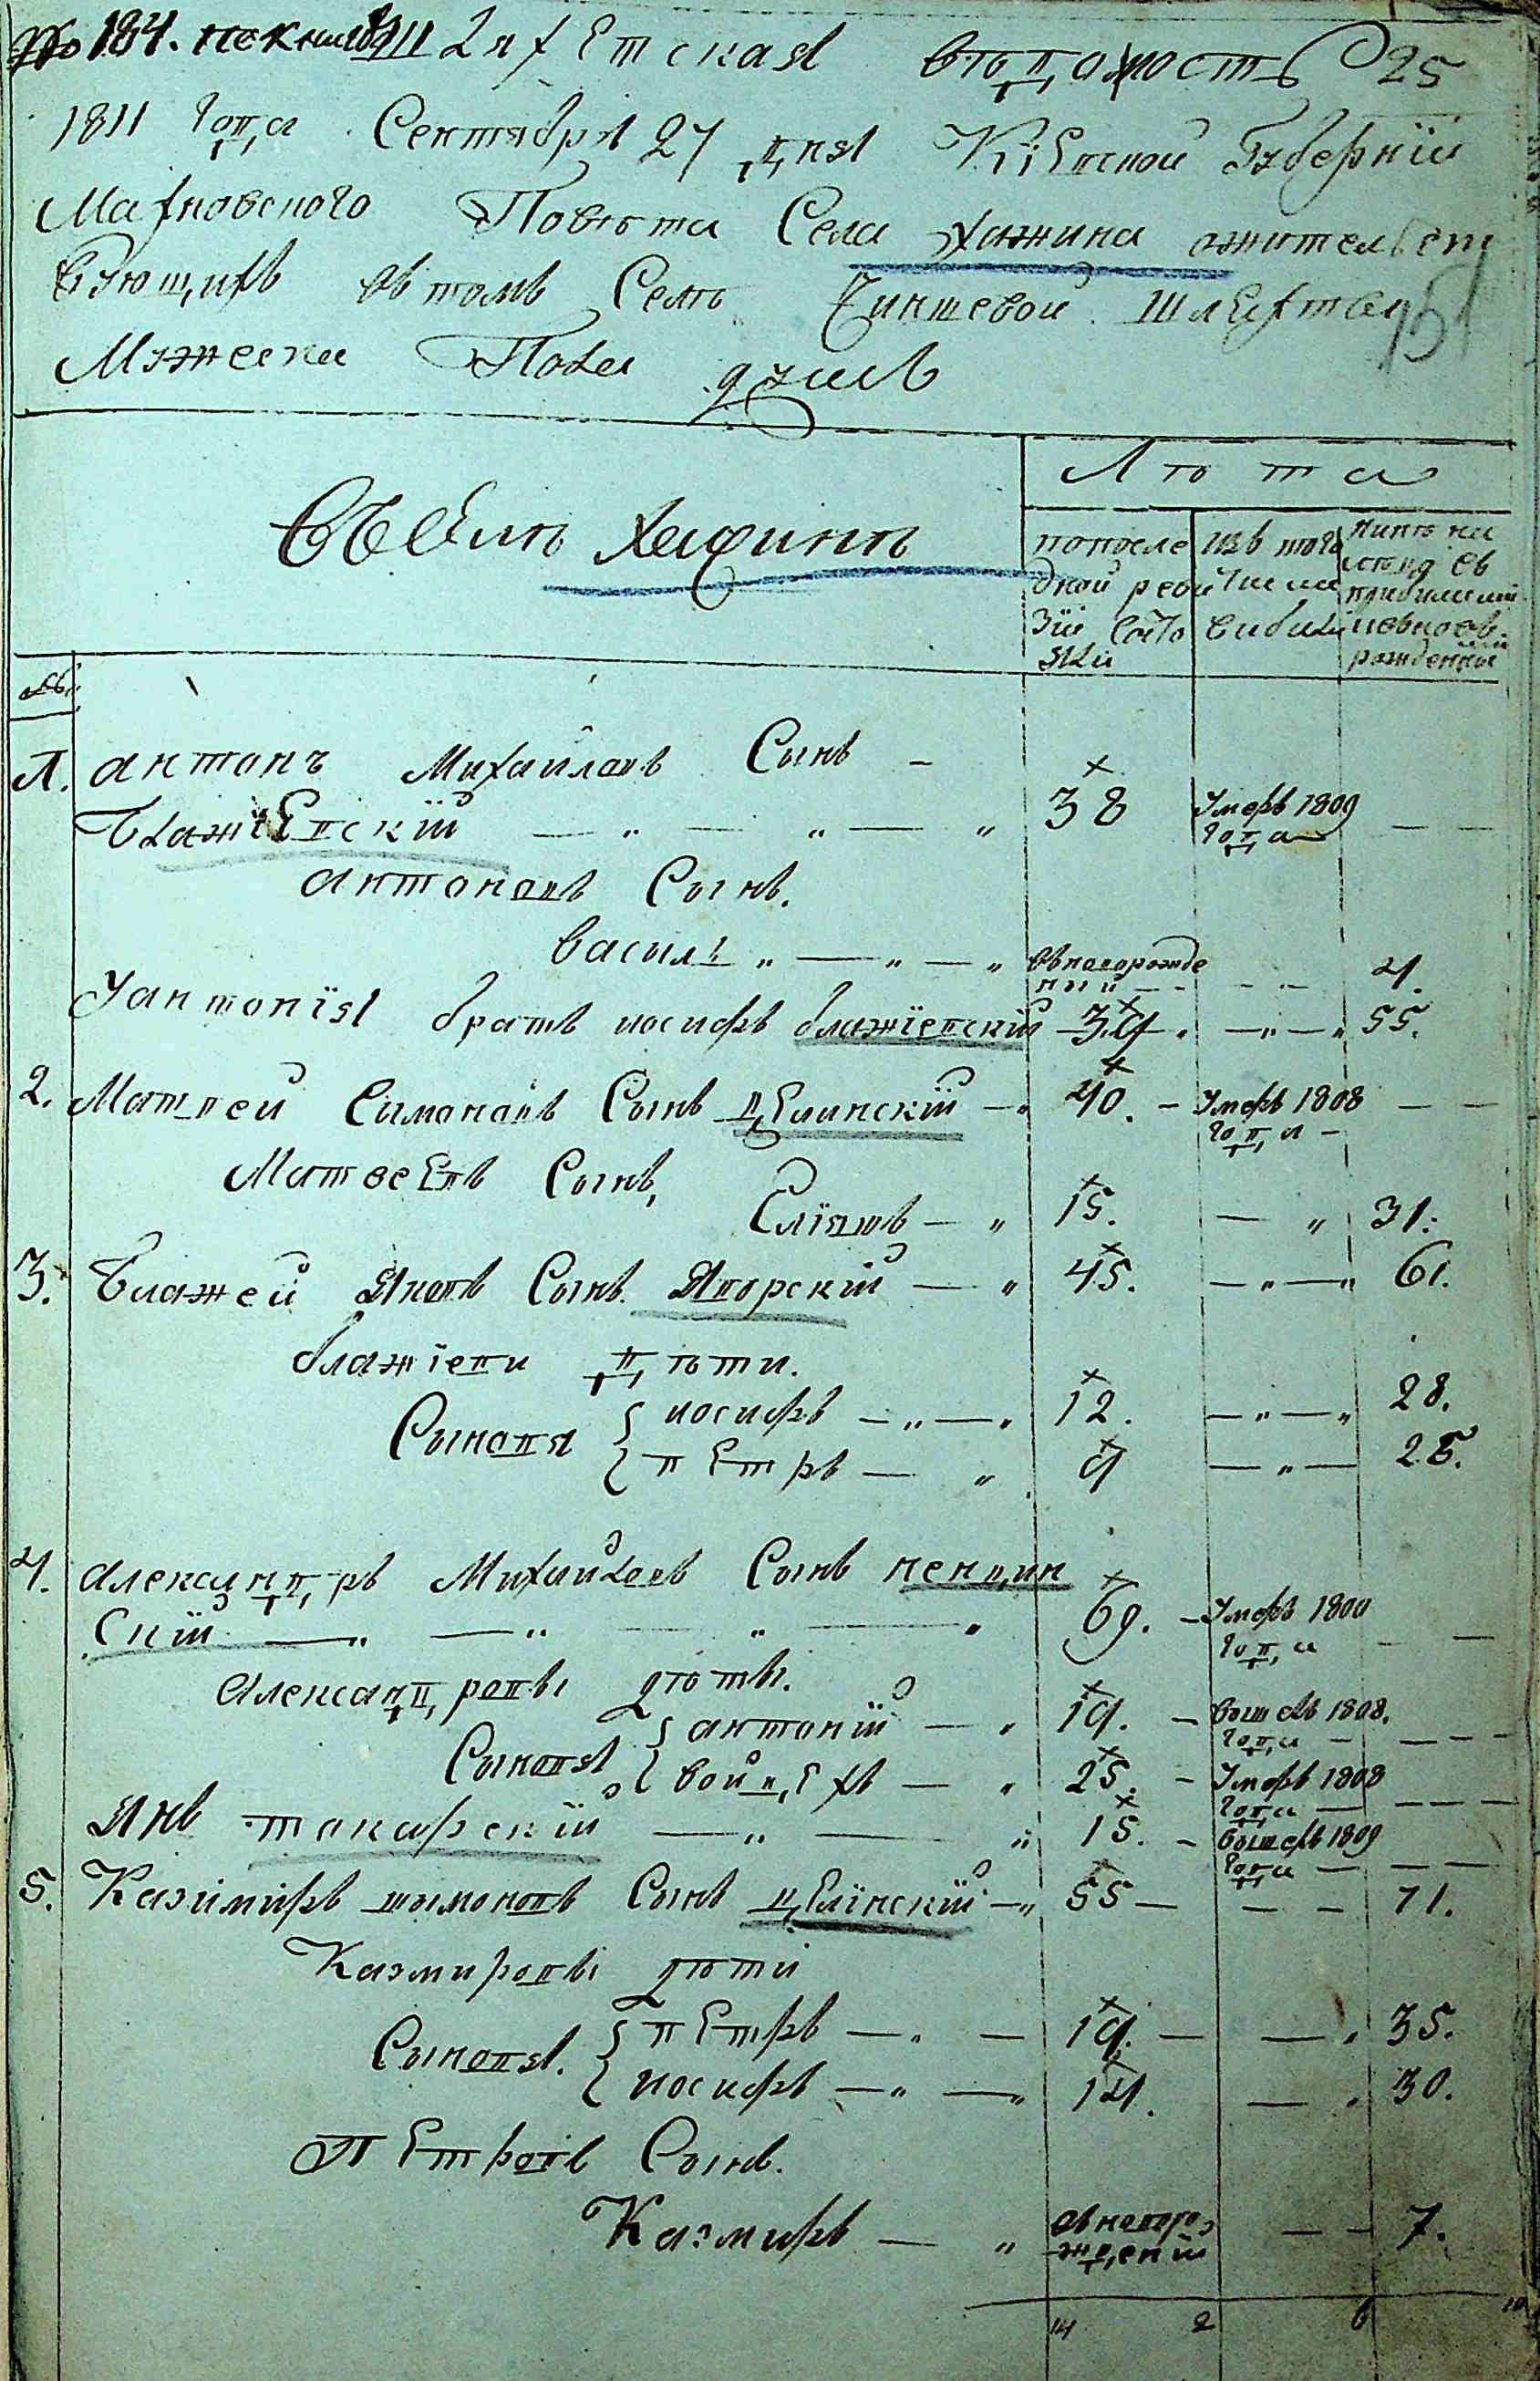 № 184. по книгѣ III Шляхетская вѣдомость 25
1811 года Сентября 27 дня Кіевской Губерніи
Махновского Повѣта Села Хажина жительст
вующихъ въ томъ Селѣ Чиншевой шляхты 151
Мужеска Пола душъ
Лѣта
Въ Селѣ Хажинѣ
по после
дной реви
зіи состо
яли
изъ того
числа
выбыли
нинѣ на
лицо съ
прибылими
и вновь
рожденны
№
1. антонъ Михайловъ Сынъ –
Блажіевскій — „ — „ — „ 38 Умеръ 1809
года — —
антоновъ Сынъ.
василь „ — „ — „ вноворожде
ний — - - - 4.
У антонія братъ иосифъ блажіевскій 39 . — „ — „ 55.
2. Матвей Симоновъ Сынъ Целинскій — „ 40. – Умеръ 1808 — —
года –
Матвеевъ Сынъ,
15. — „ 31.
3. Блажей Яковъ Сынъ Яворскій — „ 45. — „ — „ 61.
блажіеви дѣти.
Сыновя { иосифъ — „ — „ 12. — „ — „ 28.
{ пЕтръ — „ 9 — „ — 25.
4. александръ Михайловъ Сынъ пенцин
скій — „ — „ — „ — „ 69. – Умеръ 1800
года - —
александровы дѣты.
Сыновя { антоній — „ 19. – вошелъ 1808.
года – — - -
{ войцЕхъ — „ 25. – Умеръ 1808
года — — — —
Янъ токарскій — „ — „ 15. – вошелъ 1809
года — — —
5. Казимиръ шымоновъ Сынъ цЕлінскій — „ 55 — — – 71.
Казмировы дѣти
Сыновя. { пЕтръ — „ — 19. — — „ 35.
{ иосифъ — „ — „ 14. — „ 30.
пЕтровъ Сынъ.
Казмиръ — „ вноворо
жденій — – 7.
14 8 10